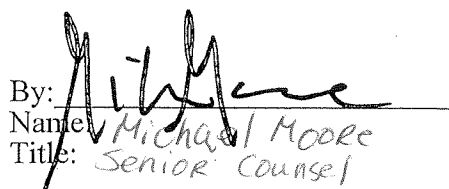 By: Mike Moore
Name: Michael Moore
Title: Senior Counsel